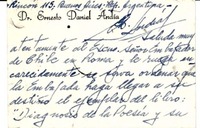 Rincón 113, Buenos Aires, Rep. Argentina
Dr. Ernesto Daniel Andía
Saluda
muy atentamente al Excmo. Señor Embajador
de Chile en Roma y le ruega en-
carecidamente se sirva ordenar que
la Embajada haga llegar a su
destino el ejemplar del libro:
"Diagnosis de la Poesía y su